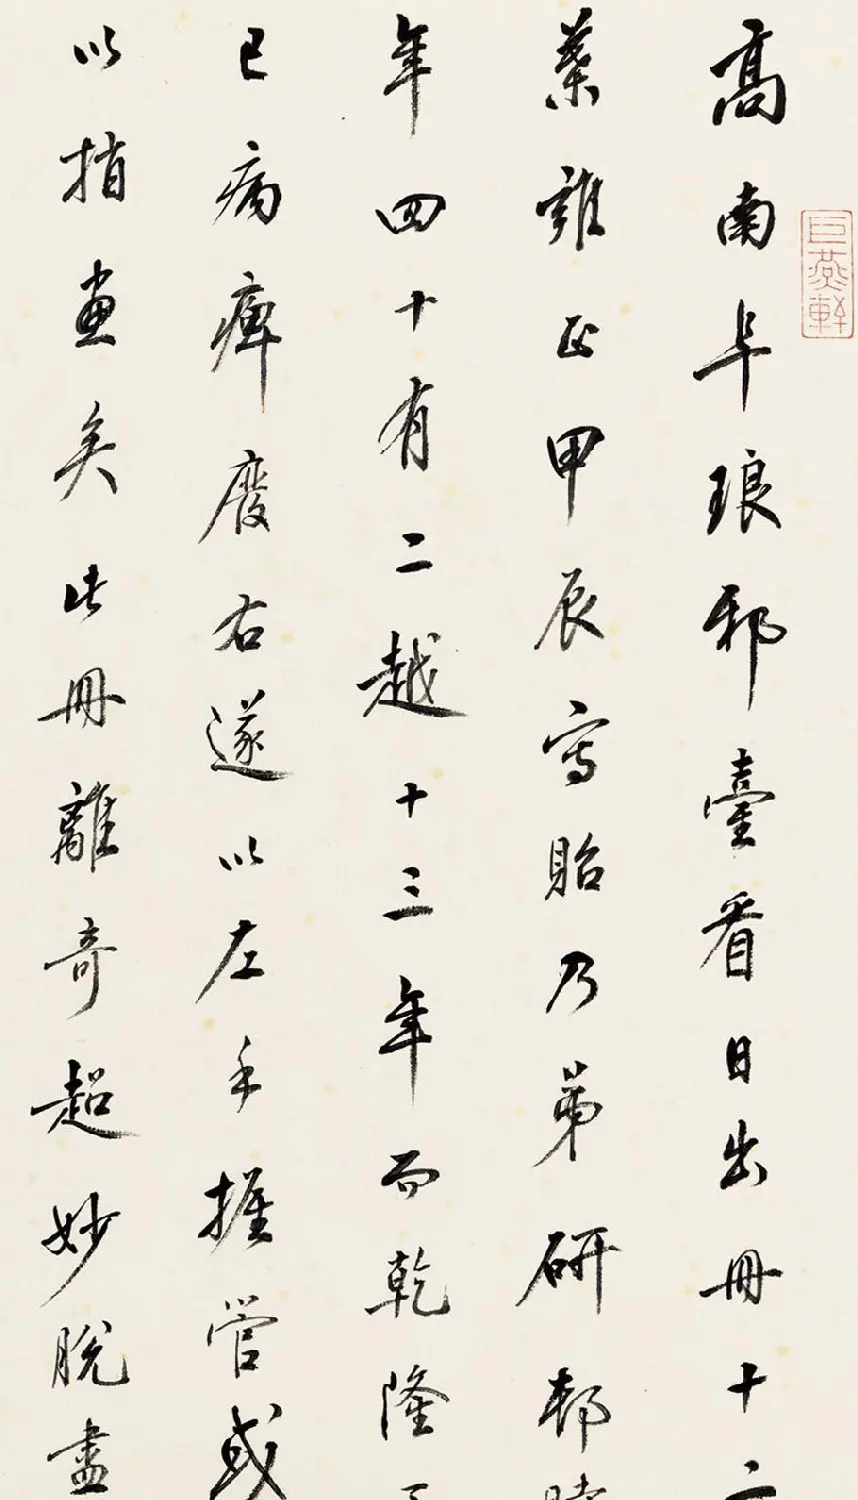 高南阜琅邪臺看日出冊十二
葉雍正甲辰寫貽乃弟研邨時
年四十有二越十三年而乾隆丁
已病痺廢右遂以左手握管或
以指畫矣此冊離奇超妙脫盡
巨燕軒